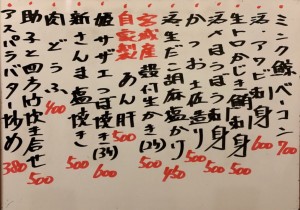 ミンク鯨ベーコン 700
活・アワビ刺身 600
生トロかじき鮪刺身 500
活〆めほうぼう刺身 500
かつお土佐造り 500
活生だこ胡麻塩かり 450
宮城産 殻付生かき(2ヶ) 500
自家製 あん肝 500
姫サザエつぼ焼き(3ヶ) 600
新さんま塩焼き 500
肉どうふ 400
助子と四方竹炊き合せ 500
アスパラバター炒め 380